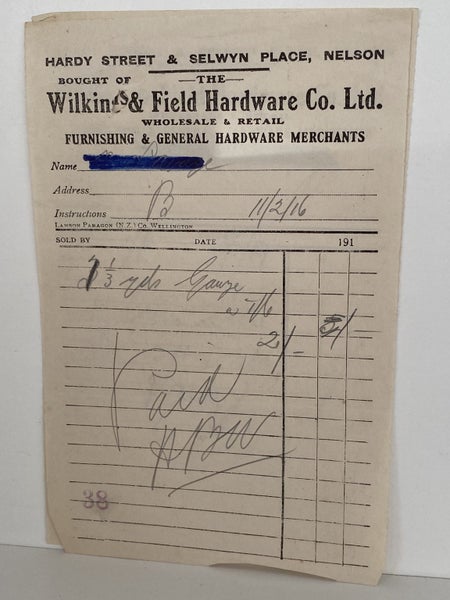 HARDY STREET & SELWYN PLACE, NELSON
BOUGHT OF —THE—
Wilkins & Field Hardware Co. Ltd.
WHOLESALE & RETAIL
FURNISHING & GENERAL HARDWARE MERCHANTS
Name
Address
Instructions B 11/2/16
LAMSON PARAGON (N.Z.) CO. WELLINGTON
SOLD BY DATE 191
1/3 yds Gauze
2/-
Paid
38